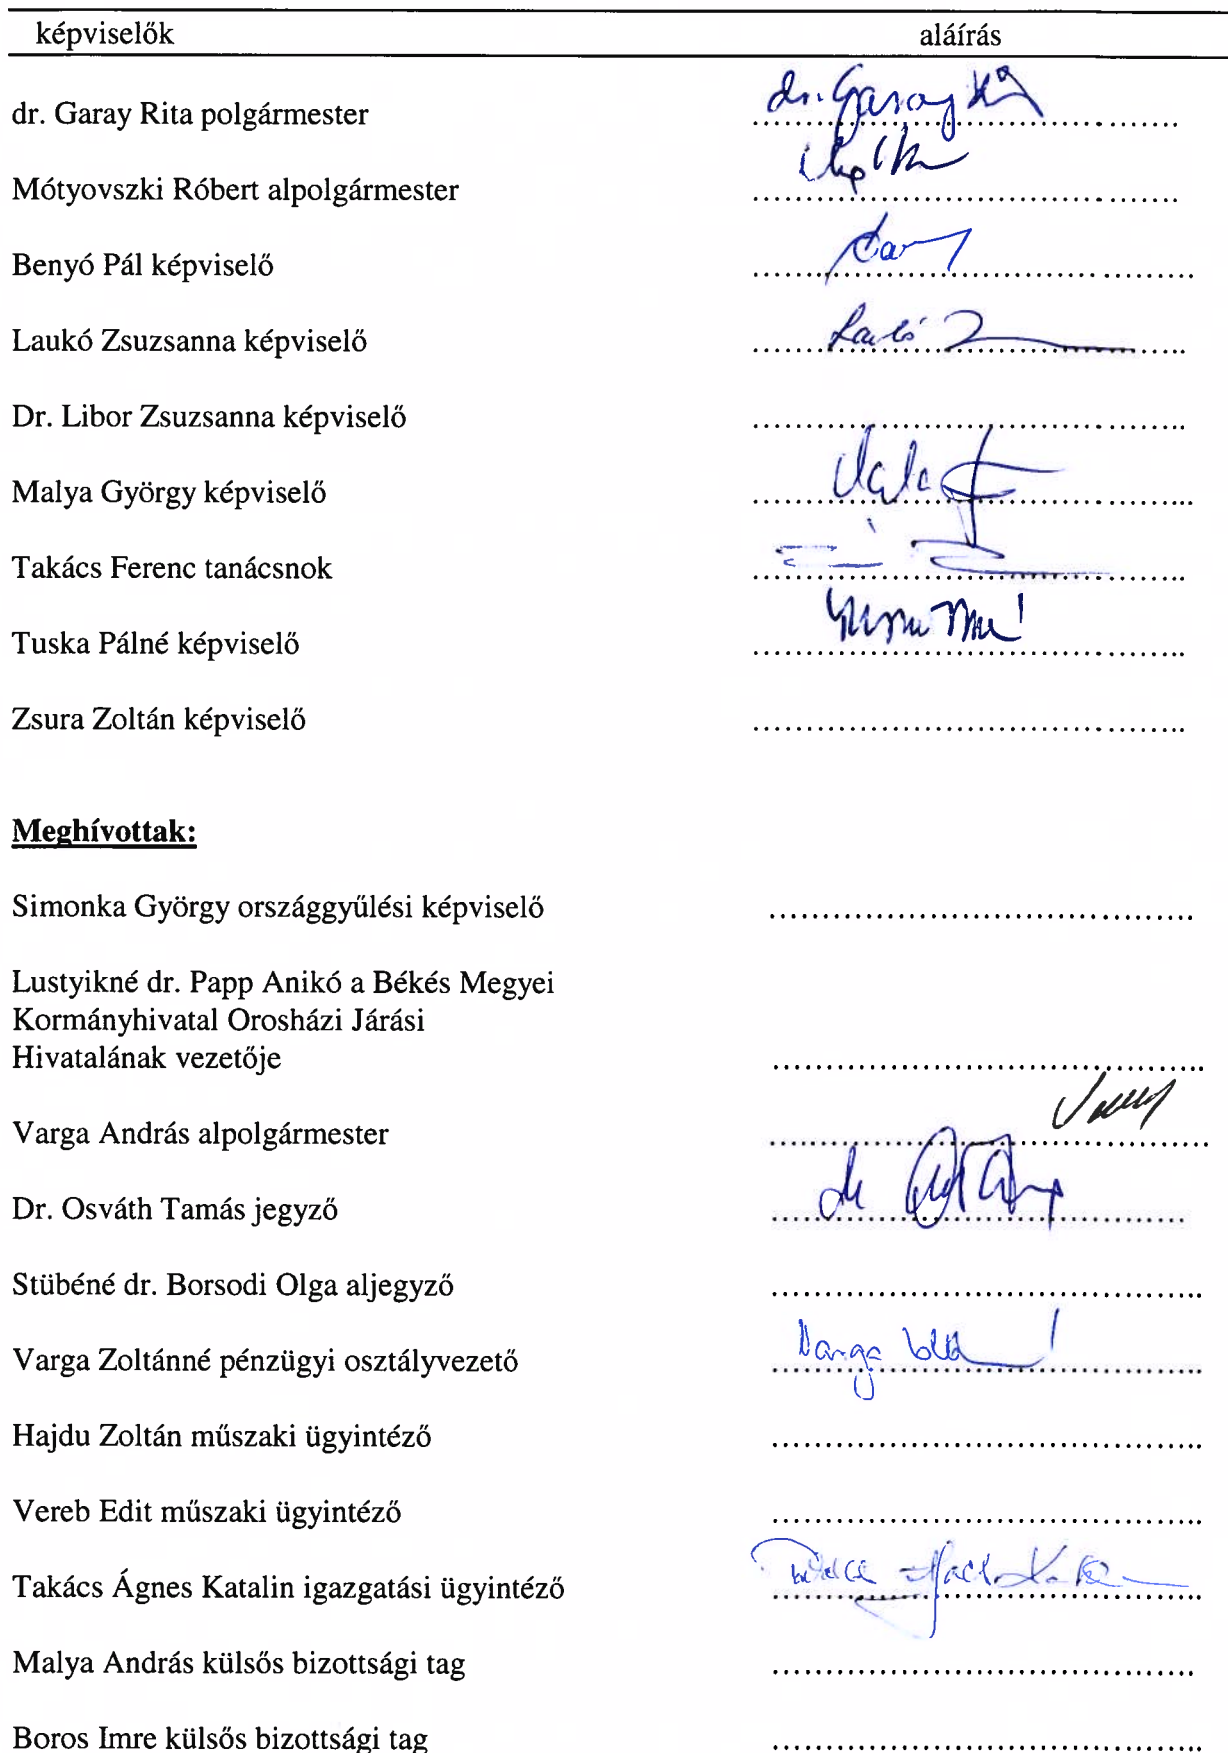 képviselők aláírás
dr. Garay Rita polgármester dr. Garay
Mótyovszki Róbert alpolgármester
Benyó Pál képviselő
Laukó Zsuzsanna képviselő
Dr. Libor Zsuzsanna képviselő
Malya György képviselő
Takács Ferenc tanácsnok
Tuska Pálné képviselő
Zsura Zoltán képviselő
Meghívottak:
Simonka György országgyűlési képviselő
Lustyikné dr. Papp Anikó a Békés Megyei
Kormányhivatal Orosházi Járási
Hivatalának vezetője
Varga András alpolgármester
Dr. Osváth Tamás jegyző
Stübéné dr. Borsodi Olga aljegyző
Varga Zoltánné pénzügyi osztályvezető Varga
Hajdu Zoltán műszaki ügyintéző
Vereb Edit műszaki ügyintéző
Takács Ágnes Katalin igazgatási ügyintéző
Malya András külsős bizottsági tag
Boros Imre külsős bizottsági tag